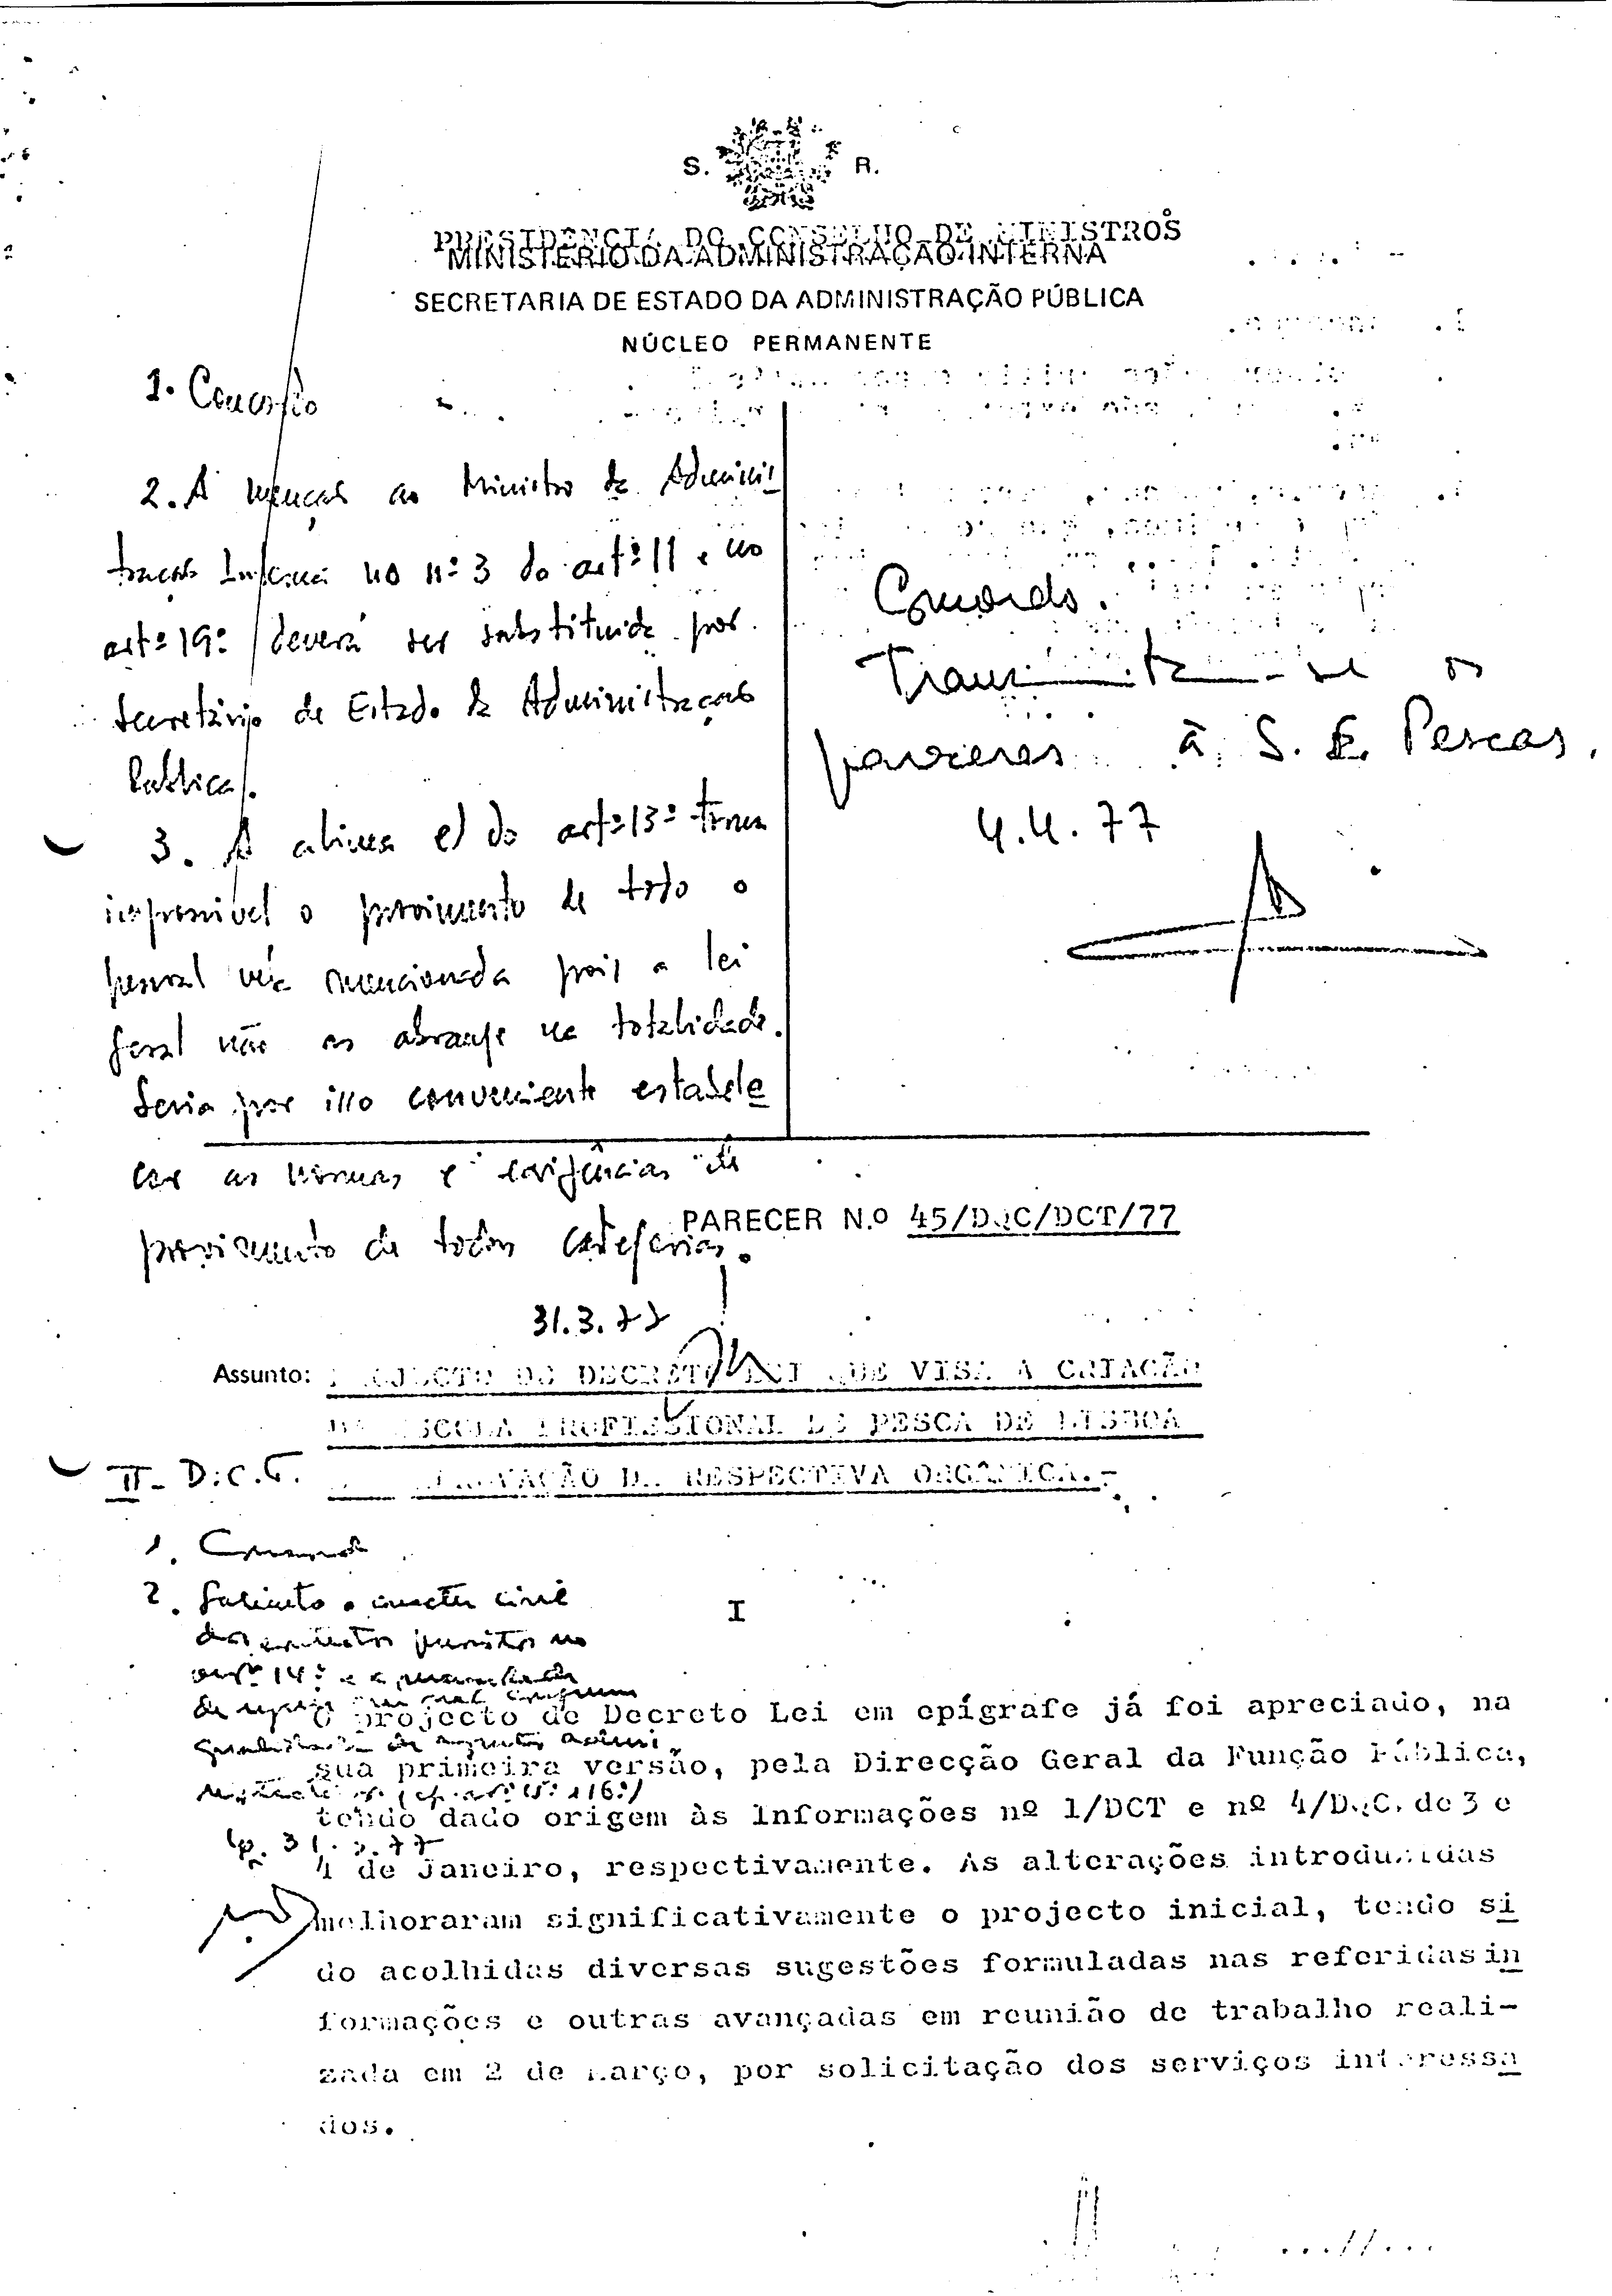 S. R.
PRESIDÊNCIA DO CONSELHO DE MINISTROS
MINISTÉRIO DA ADMINISTRAÇÃO INTERNA
SECRETARIA DE ESTADO DA ADMINISTRAÇÃO PÚBLICA
NÚCLEO PERMANENTE
1. Concordo
2. A menção ao Ministro da Adminis
tração Interna no nº 3 do artº 11 e no
artº 19º deverá ser substituida por
Secretário de Estado da Administração
Pública.
3. A alinea e) do artº 13º torna
impossível o provimento de todo o
pessoal nela mencionado pois a lei
geral não os abrange na totalidade.
Seria por isso conveniente estabele
cer as normas e exigências de
provimento de todas categorias.
31.3.77
Concordo.
Transmita-se os
pareceres à S. E. Pescas.
4.4.77
PARECER N.º 45/DGC/DCT/77
Assunto: PROJECTO DO DECRETO LEI QUE VISA A CRIAÇÃO
DA ESCOLA PROFISSIONAL DE PESCA DE LISBOA
APROVAÇÃO DA RESPECTIVA ORGÂNICA.-
II - D.C.T.
1. Concordo
2. Saliento o caracter civil
dos previstos no
artº 14º e a
de
31.3.77
I
O projecto de Decreto Lei em epígrafe já foi apreciado, na
sua primeira versão, pela Direcção Geral da Função Pública,
tendo dado origem às Informações nº 1/DCT e nº 4/DGC, de 3 e
4 de Janeiro, respectivamente. As alterações introduzidas
melhoraram significativamente o projecto inicial, tendo si
do acolhidas diversas sugestões formuladas nas referidas in
formações e outras avançadas em reunião de trabalho reali-
zada em 2 de Março, por solicitação dos serviços interessa
dos.
...//...